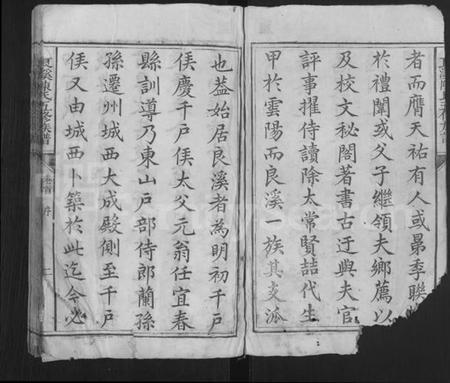 者而膺天祐有人或昴季聯
於禮闈或父子繼領夫鄉薦以
及校文秘閣著書古迂與夫官
評事擢侍讀除太常賢喆代生
甲於雲陽而良溪一族其支派
也葢始居良溪者為明初千戶
侯慶千戶侯太父元翁任宜春
縣訓導乃東山戶部侍郎蘭孫
孫遷州城西大成殿側至千戶
侯又由城西卜築於此迄今必